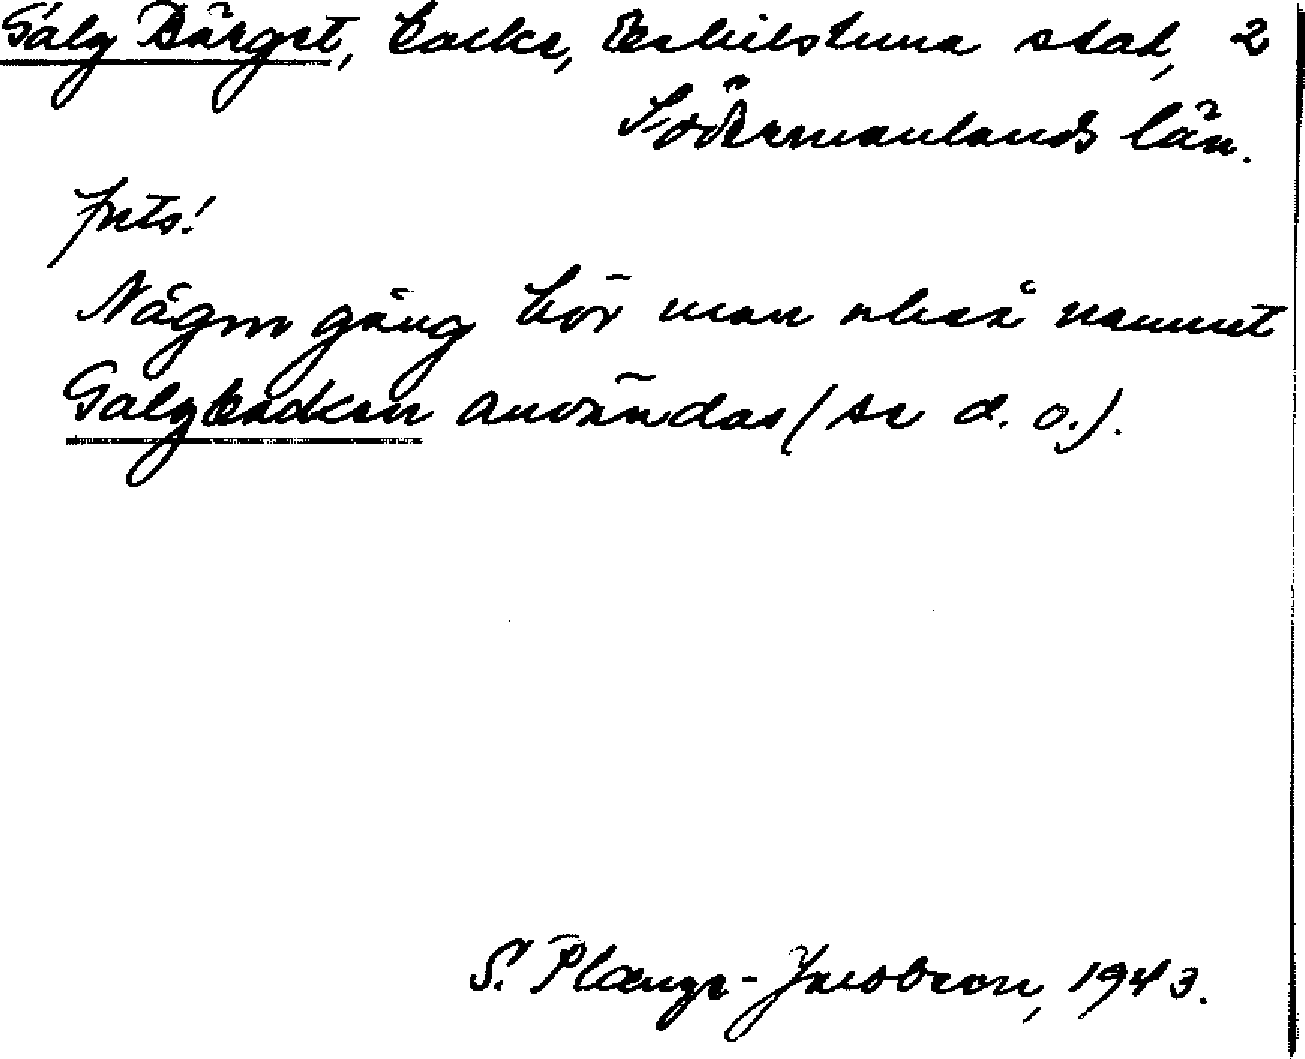 Galgbärget, backe, Eskilstuna stad, 2
Södermanlands län.
forts!
Någon gång hör man också namnet
Galgbacken användas (se d. o.).
S. Plænge-Jacobson, 1943.